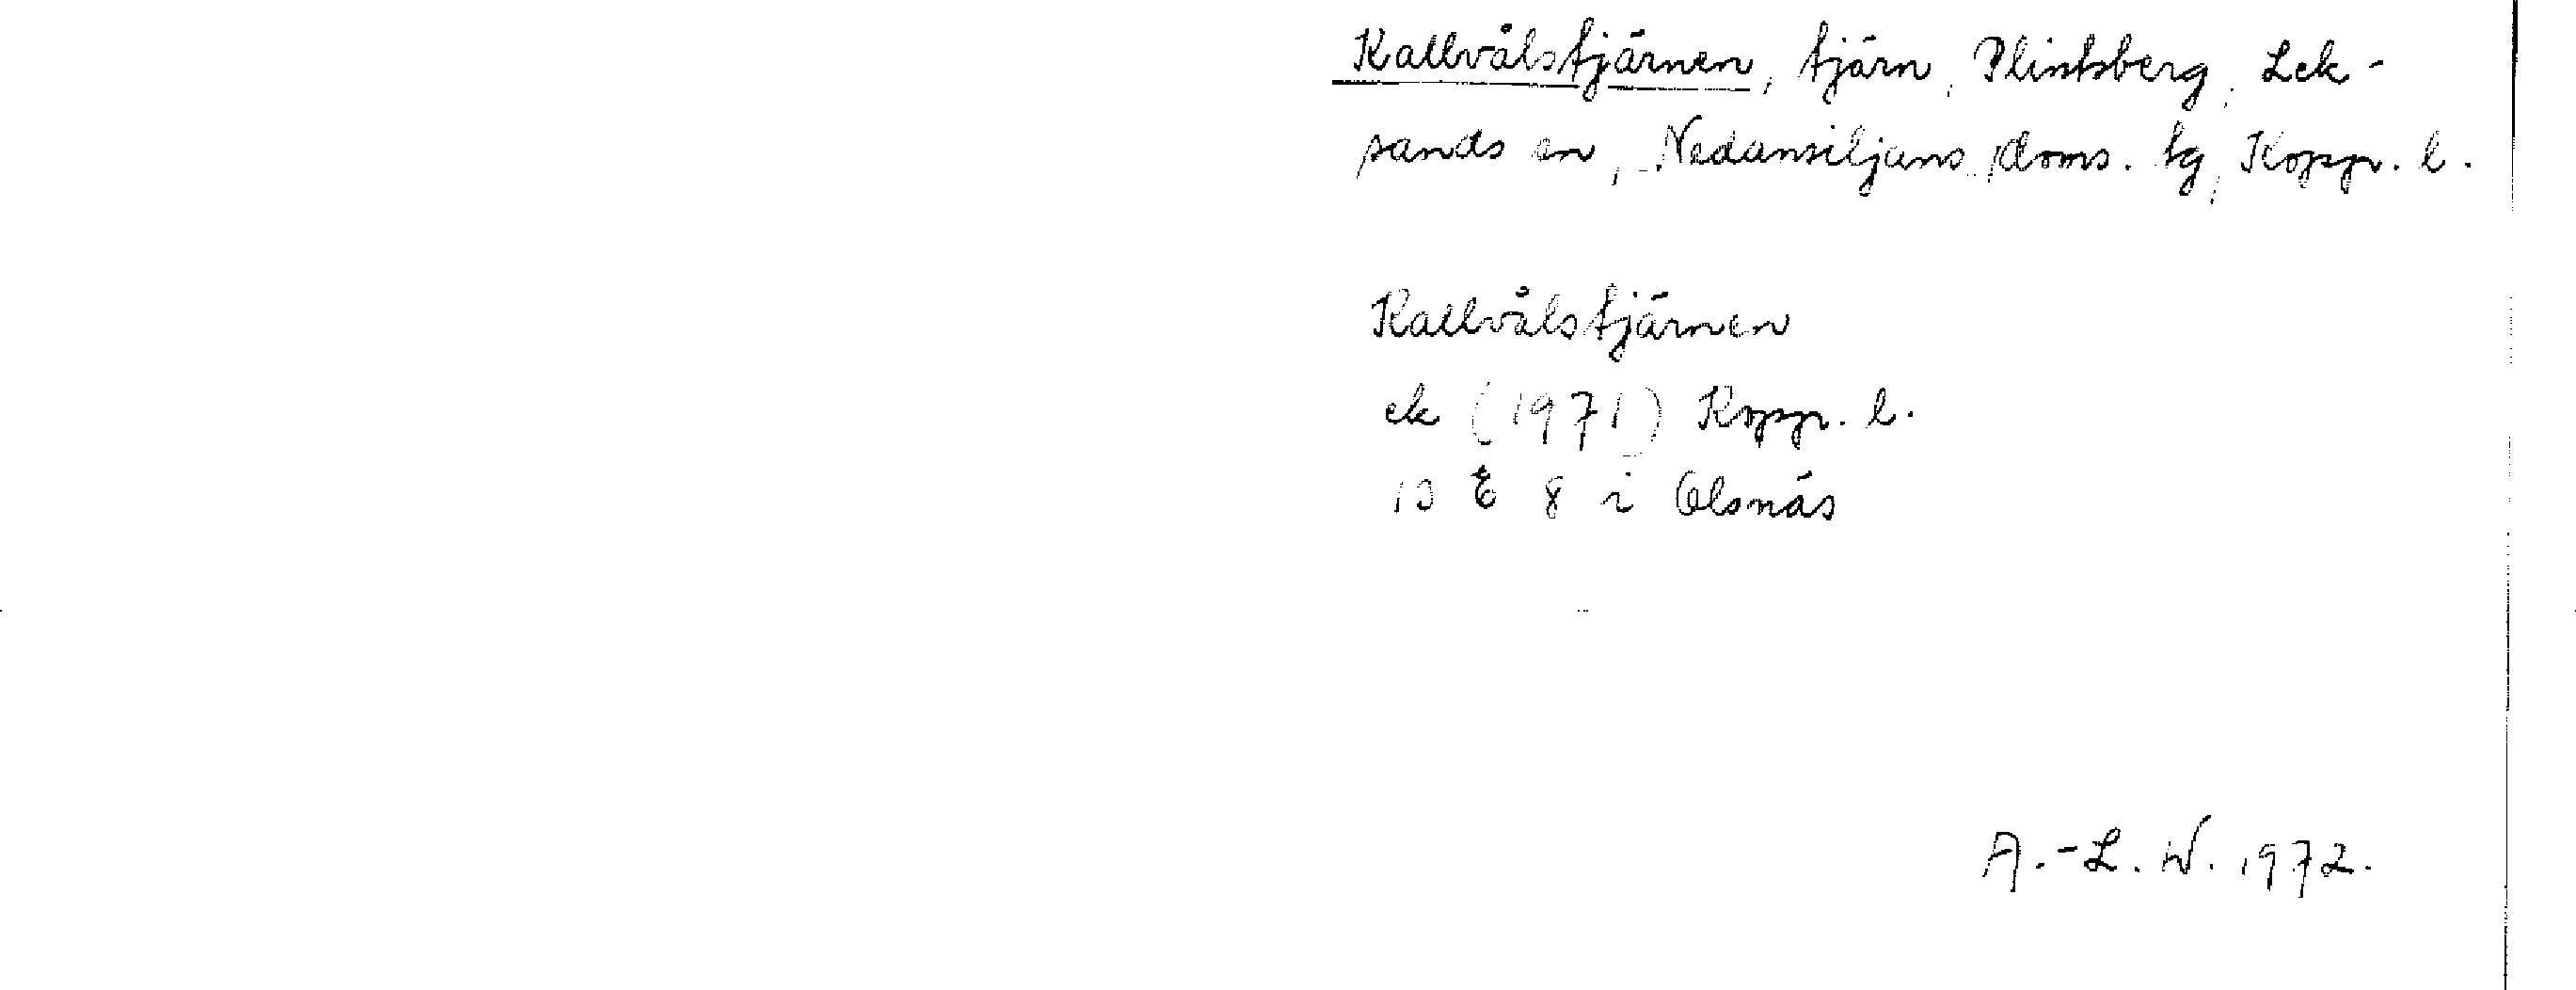 Kallvålstjärnen, tjärn, Plintsberg, Lek-
sands sn, Nedansiljans doms. tg, Kopp. l.
Kallvålstjärnen
ek (1971) Kopp. l.
13 E 8 i Olsnäs
A.-L. W. 1972.